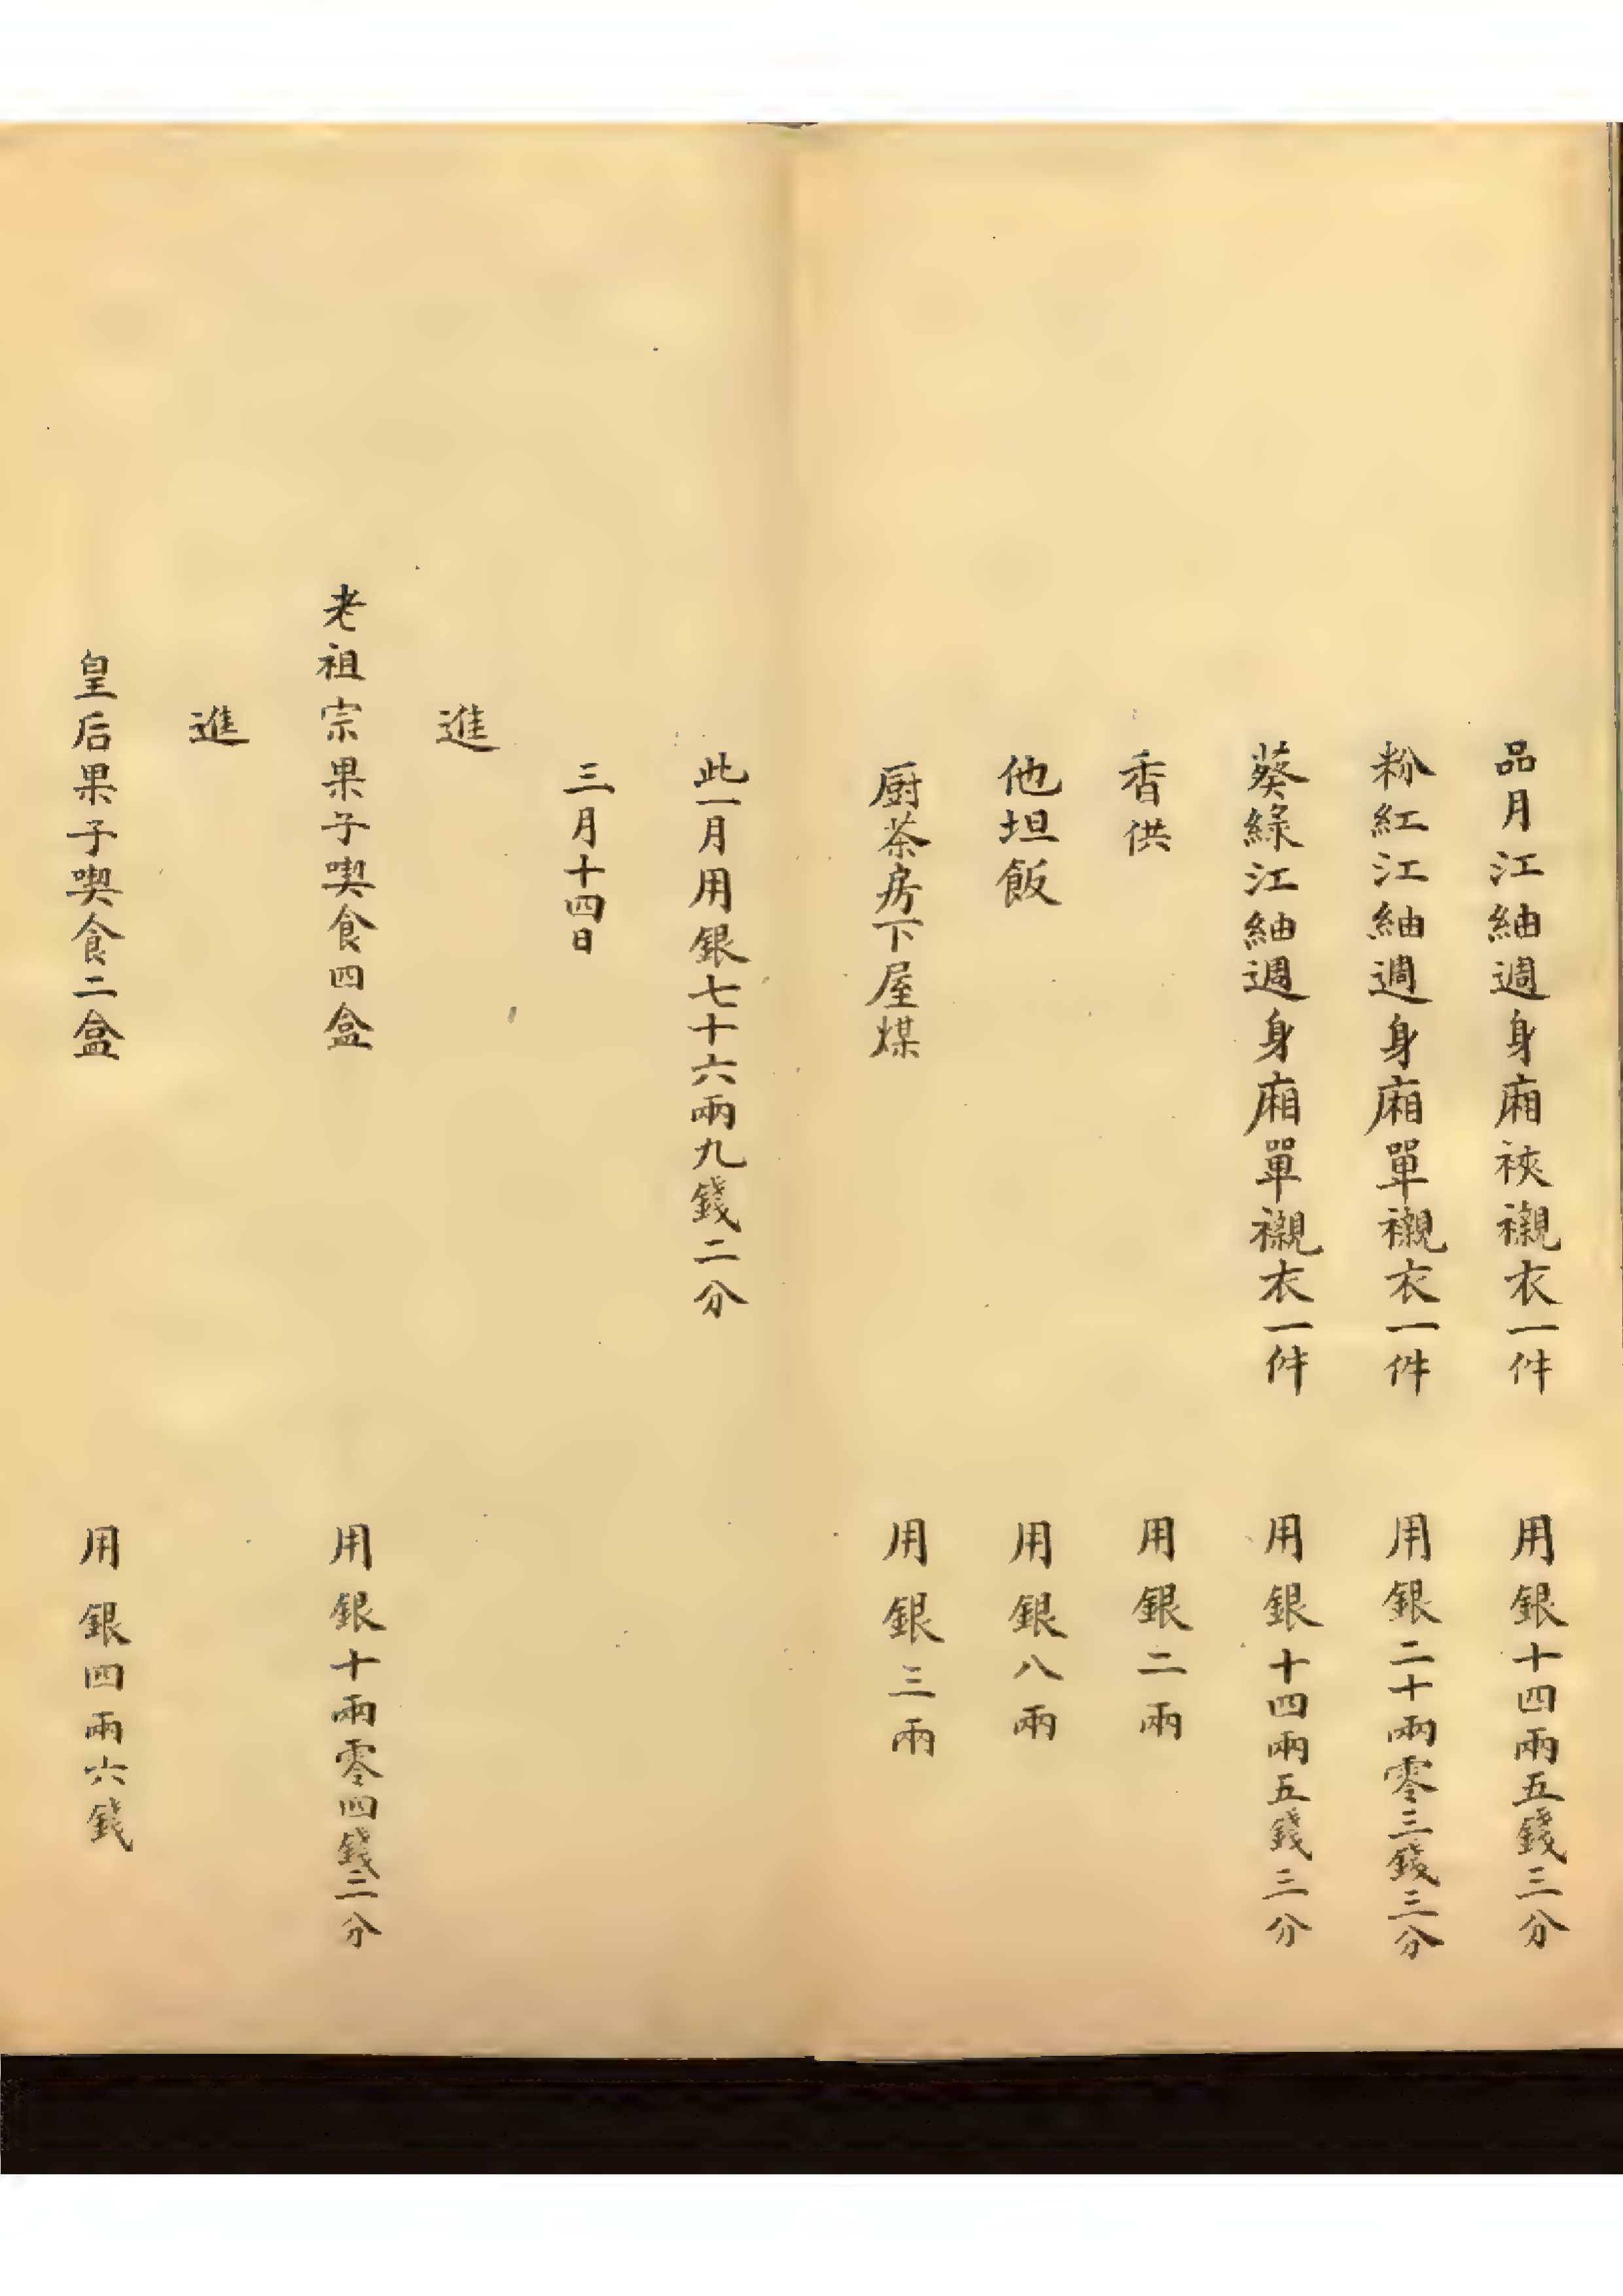 品月江紬週身廂裌襯衣一件　用銀十四兩五錢三分
粉紅江紬週身廂單襯衣一件　用銀二十兩零三錢三分
葵綠江紬週身廂單襯衣一件　用銀十四兩五錢三分
香供　用銀二兩
他坦飯　用銀八兩
厨茶房下屋煤　用銀三兩
此一月用銀七十六兩九錢二分
三月十四日
進
老祖宗果子喫食四盒　用銀十兩零四錢三分
進
皇后果子喫食二盒　用銀四兩六錢